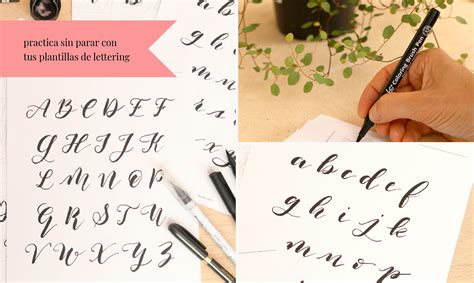 practica sin parar con
tus plantillas de lettering
A B C D E F
G H I J K
L M N O P
Q R S T U
V W X Y Z
Coloring Brush Pen
a b c d e f
g h i j k
m n o p